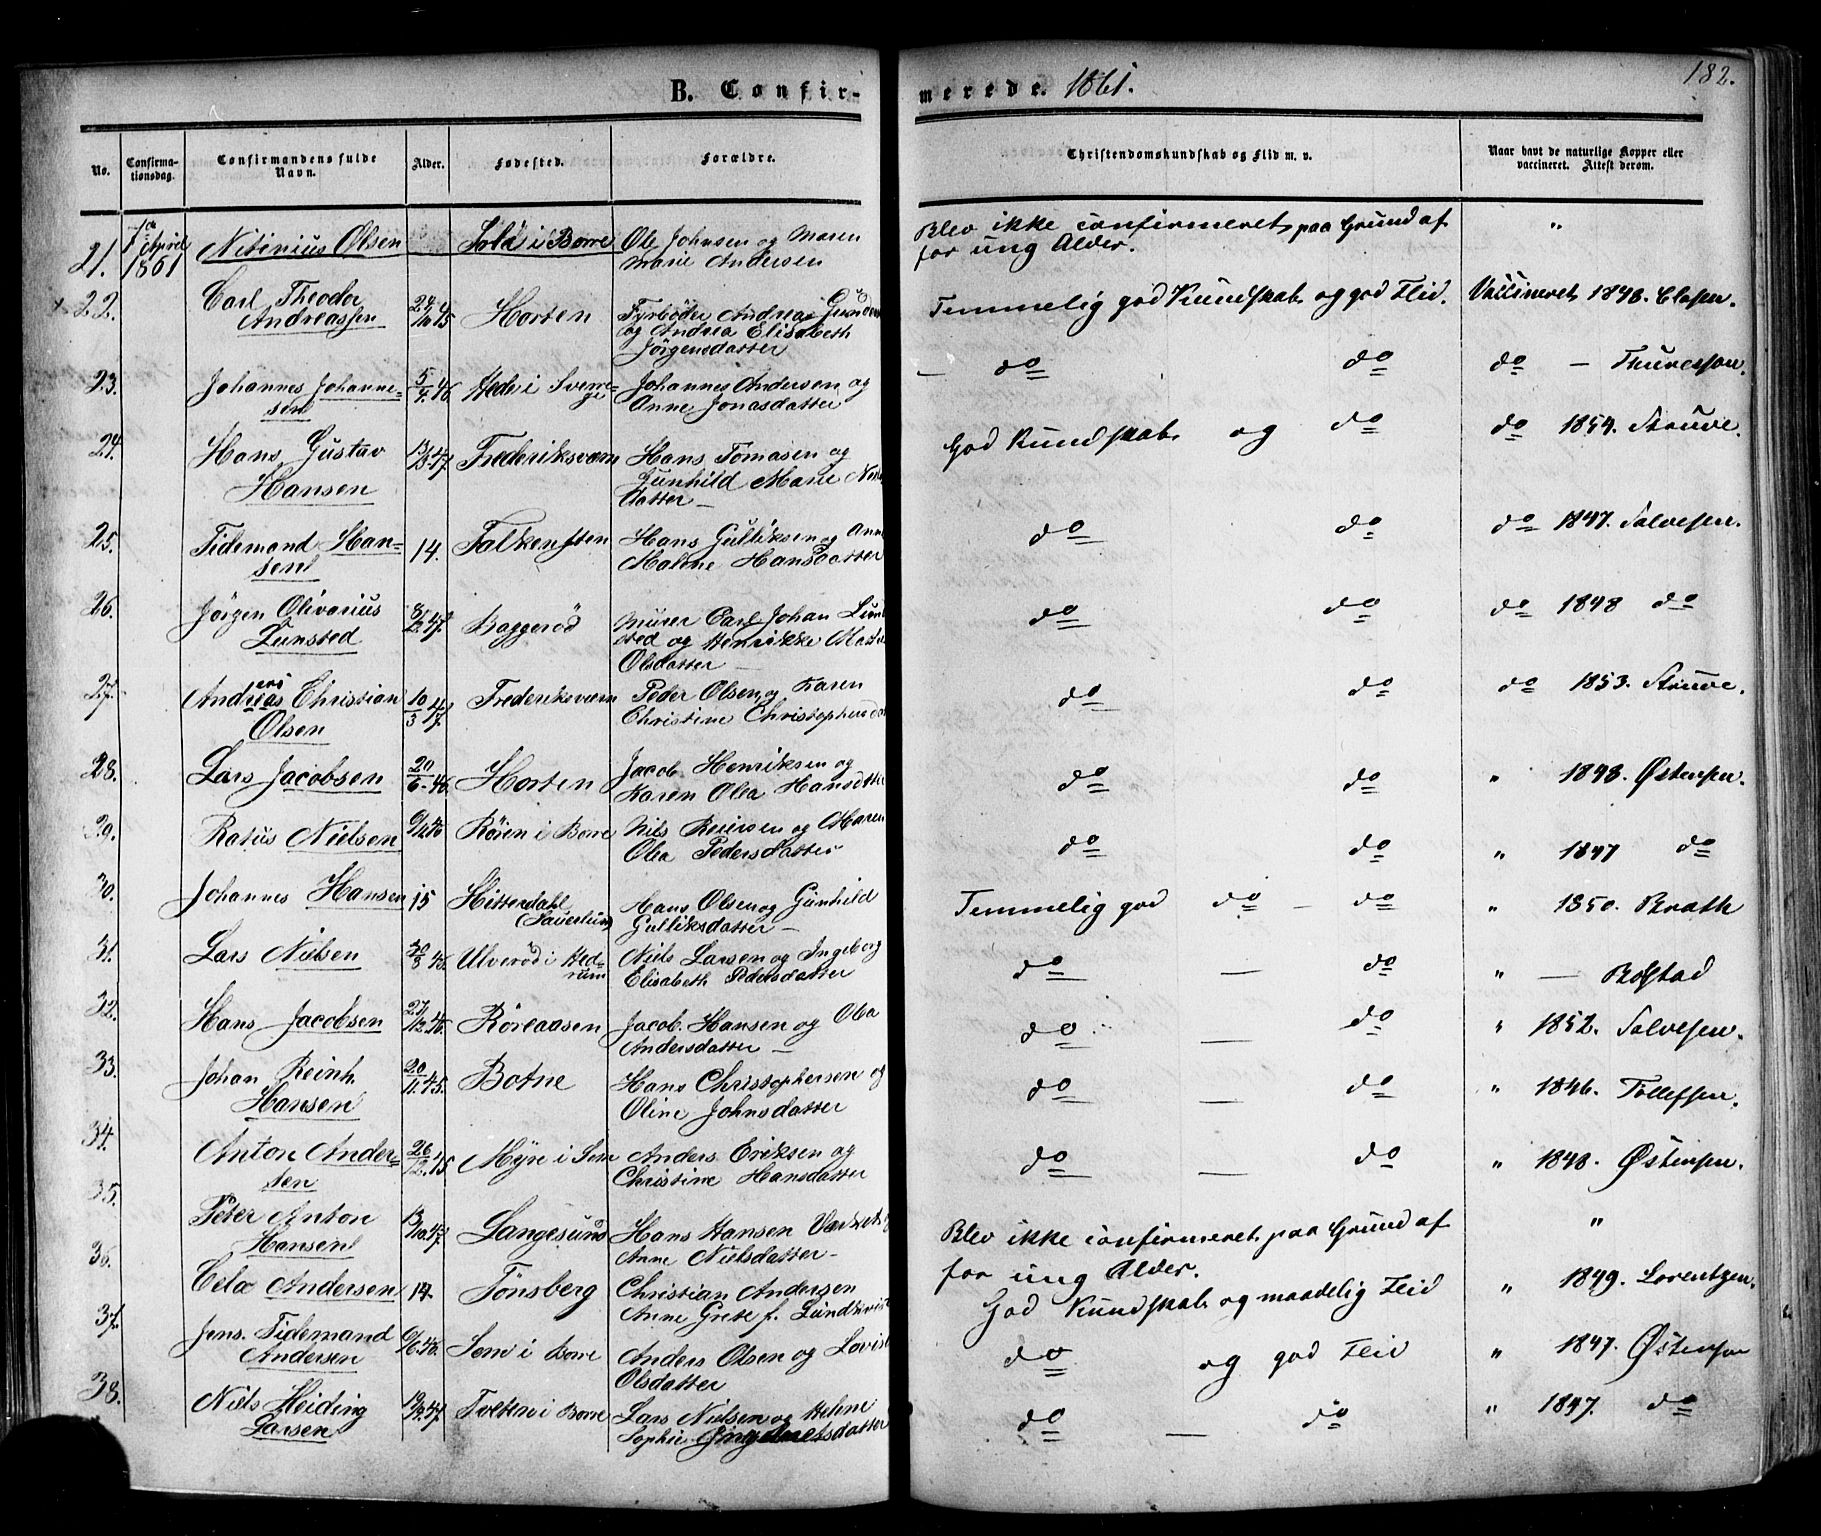 182.
B. Confir-
merede. 1861.
No.
Confirma-
tionsdag.
Confirmandens fulde
Navn.
Alder.
Fødested.
Forældre.
Christendomskundskab og Flid m. v.
Naar havt de naturlige Kopper eller
vaccineret. Attest derom.
21. April 1861 Nitinius Olsen i Borre Ole Johnsen og Maren
Marie Andersen
Blev ikke confirmeret paa Grund af
for ung Alder.
"
22. Carl Theodor
Andreassen
24/10 45 Horten Fyrbøder Andreas
og Andrea Elisabeth
Jörgensdatter
Temmelig god Kundskab og god Flid. Vaccineret 1848. Clasen.
23. Johannes Johanne-
sen
5/4 46 i Sverri-
ge
Johannes Andersen og
Anne Jonasdatter
do do do — Thuvesson.
24. Hans Gustav
Hansen
Frederiksværn Hans Tomasen og
Gunhild Marie
datter
God Kundskab og do do 1854. Struve.
25. Tidemand Han-
sen
14. Falkensten Hans Gulliksen og Anne
Malene Hansdatter
do do do 1847. Salvesen.
26. Jörgen Olivarius
Lunsted
8/12 47 Baggeröd Murer Carl Johan Lun
sted og Henrikke
Olsdatter
do do do 1848 do
27. Andreas Christian
Olsen
10/3 47. Frederiksværn Peder Olsen og Karen
Christine Christophersd
do do do 1853. Struve.
28. Lars Jacobsen 20/6 46. Horten Jacob Henriksen og
Karen Olea Hansdatter
do do " 1848. Østensen.
29. Ratus Nielsen i Borre Nils Reiersen og Maren
Olea Pedersdatter
do do " 1847 do
30. Johannes Hansen 15 Hitterdahl
Hans Olsen og Gunhild
Gulliksdatter —
Temmelig god do — do " 1850. Brath
31. Lars Nielsen Ulveröd i Hed-
rum
Niels Larsen og Ingeborg
Elisabeth Pedersdatter
do — do " — Bolstad
32. Hans Jacobsen 27/12 46. Röreaasen Jacob Hansen og Olea
Andersdatter —
do — do " 1852. Salvesen.
33. Johan Reinh.
Hansen
20/11 45. Botne Hans Christophersen og
Oline Johnsdatter
do — do " 1846. Tollefsen.
34. Anton Ander-
sen
26/12 45 Myre i Sem Anders Eriksen og
Christine Hansdatter
do — do " 1848. Østensen.
35. Peter Anton
Hansen
13/10 47. Langesund Hans Hansen
Anne Nielsdatter —
Blev ikke confirmeret paa Grund af
for ung Alder.
"
36. Andersen 14. Tönsberg Christian Andersen
Anne Grete f. Lundkvist
God Kundskab og maadelig Flid " 1849. Lorentzen.
37. Jens Tidemand
Andersen
6/6 46. Sem i Borre Anders Olsen og Lovise
Olsdatter
do og god Flid " 1847. Østensen
38. Niels Heiding
Larsen
i Borre Lars Nielsen og Helene
Sophie
do — do " 1847. do